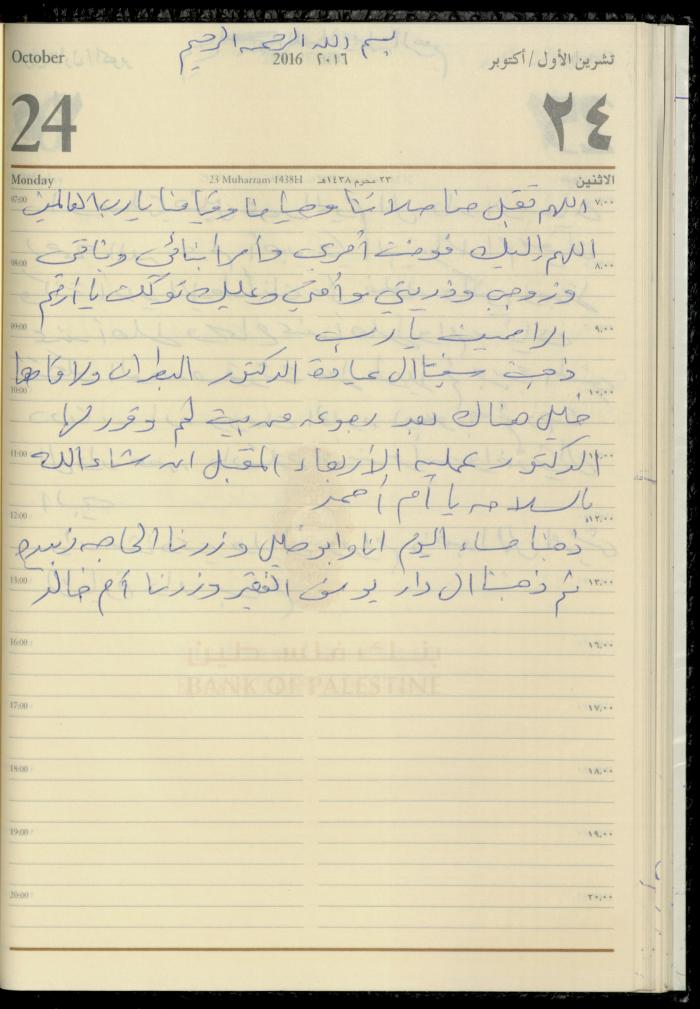 بسم الله الرحمن الرحيم
October 2016 ٢٠١٦ تشرين الأول / أكتوبر
24 ٢٤
Monday 23 Muharram 1438H ٢٣ محرم ١٤٣٨هـ الاثنين
07:00 اللهم تقبل منا صلاتنا وصيامنا وقيامنا يارب العالمين ٧,٠٠
اللهم إليك فوضت أمري وأمر ابنائي وبناتي
08:00 ٨,٠٠
وزوجي وذريتي وأمتي وعليك توكلت يا أرحم
09:00 الراحمين يا رب ٩,٠٠
ذهبت الى عيادة الدكتور البطران ولاقاها
10:00 ١٠,٠٠
خليل هناك بعد رجوعه من بيت لحم وقرر لها
11:00 الدكتور عمليه الأربعاء المقبل ان شاء الله ١١,٠٠
بالسلامه يا أم أحمد
12:00 ١٢,٠٠
ذهبنا مساء اليوم انا وابو خليل وزرنا الحاجه زبيده
13:00 ثم ذهبنا ال دار يوسف الفقير وزرنا أم خالد ١٣,٠٠
16:00 ١٦,٠٠
بنك فلسطين
BANK OF PALESTINE
17:00 ١٧,٠٠
18:00 ١٨,٠٠
19:00 ١٩,٠٠
20:00 ٢٠,٠٠